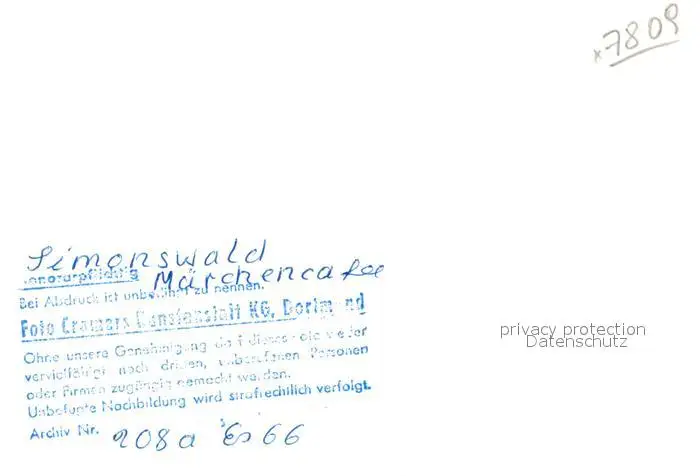 x7809
Simonswald
Honorarpflichtig Märchencafee
Bei Abdruck ist unbedingt zu nennen.
Foto Cramers Kunstanstalt KG, Dortmund
Ohne unsere Genehmigung darf dieses Foto weder
vervielfältigt noch dritten, unberufenen Personen
oder Firmen zugängig gemacht werden.
Unbefugte Nachbildung wird strafrechtlich verfolgt.
Archiv Nr. 208a 66
privacy protection
Datenschutz